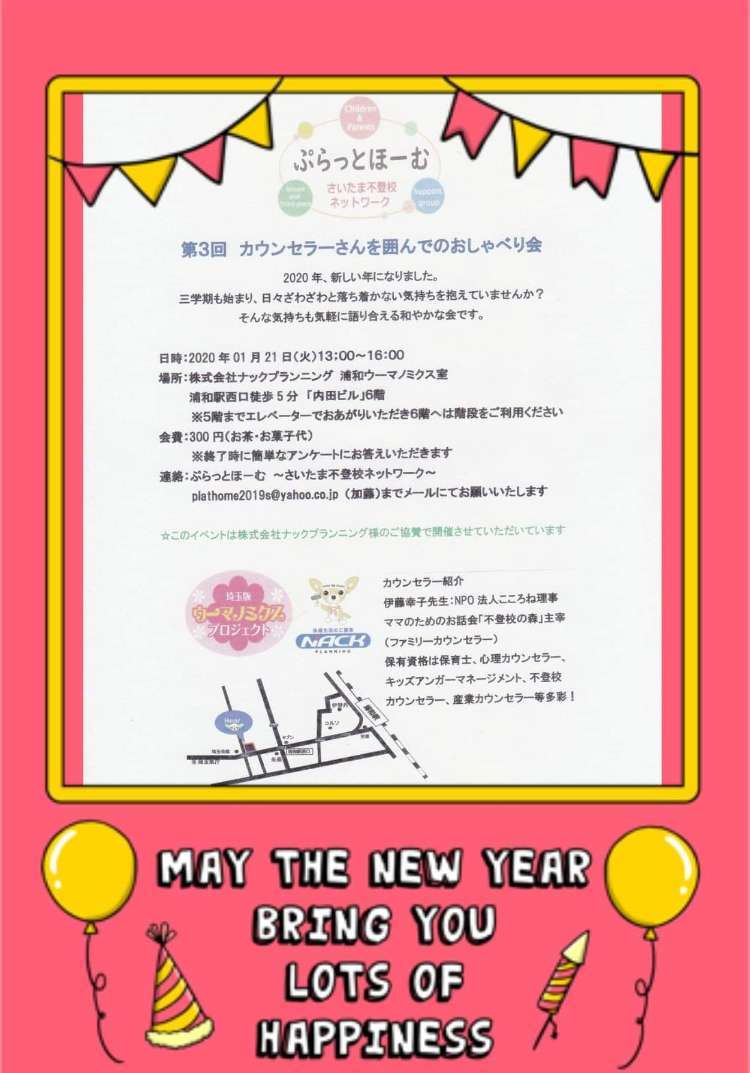 Children
&
Parents
ぷらっとほーむ
さいたま不登校
ネットワーク
School
and
Third place
Support
group
第3回 カウンセラーさんを囲んでのおしゃべり会
2020年、新しい年になりました。
三学期も始まり、日々ざわざわと落ち着かない気持ちを抱えていませんか？
そんな気持ちも気軽に語り合える和やかな会です。
日時：2020年01月21日（火）13：00～16：00
場所：株式会社ナックプランニング 浦和ウーマノミクス室
浦和駅西口徒歩5分 「内田ビル」6階
※5階までエレベーターでおあがりいただき6階へは階段をご利用ください
会費：300円（お茶・お菓子代）
※終了時に簡単なアンケートにお答えいただきます
連絡：ぷらっとほーむ ～さいたま不登校ネットワーク～
plathome2019s@yahoo.co.jp （加藤）までメールにてお願いいたします
☆このイベントは株式会社ナックプランニング様のご協賛で開催させていただいています
埼玉版
ウーマノミクス
プロジェクト
NACK
PLANNING
カウンセラー紹介
伊藤幸子先生：NPO法人こころね理事
ママのためのお話会「不登校の森」主宰
（ファミリーカウンセラー）
保有資格は保育士、心理カウンセラー、
キッズアンガーマネージメント、不登校
カウンセラー、産業カウンセラー等多彩！
Here!
伊勢丹
コルソ
MAY THE NEW YEAR
BRING YOU
LOTS OF
HAPPINESS